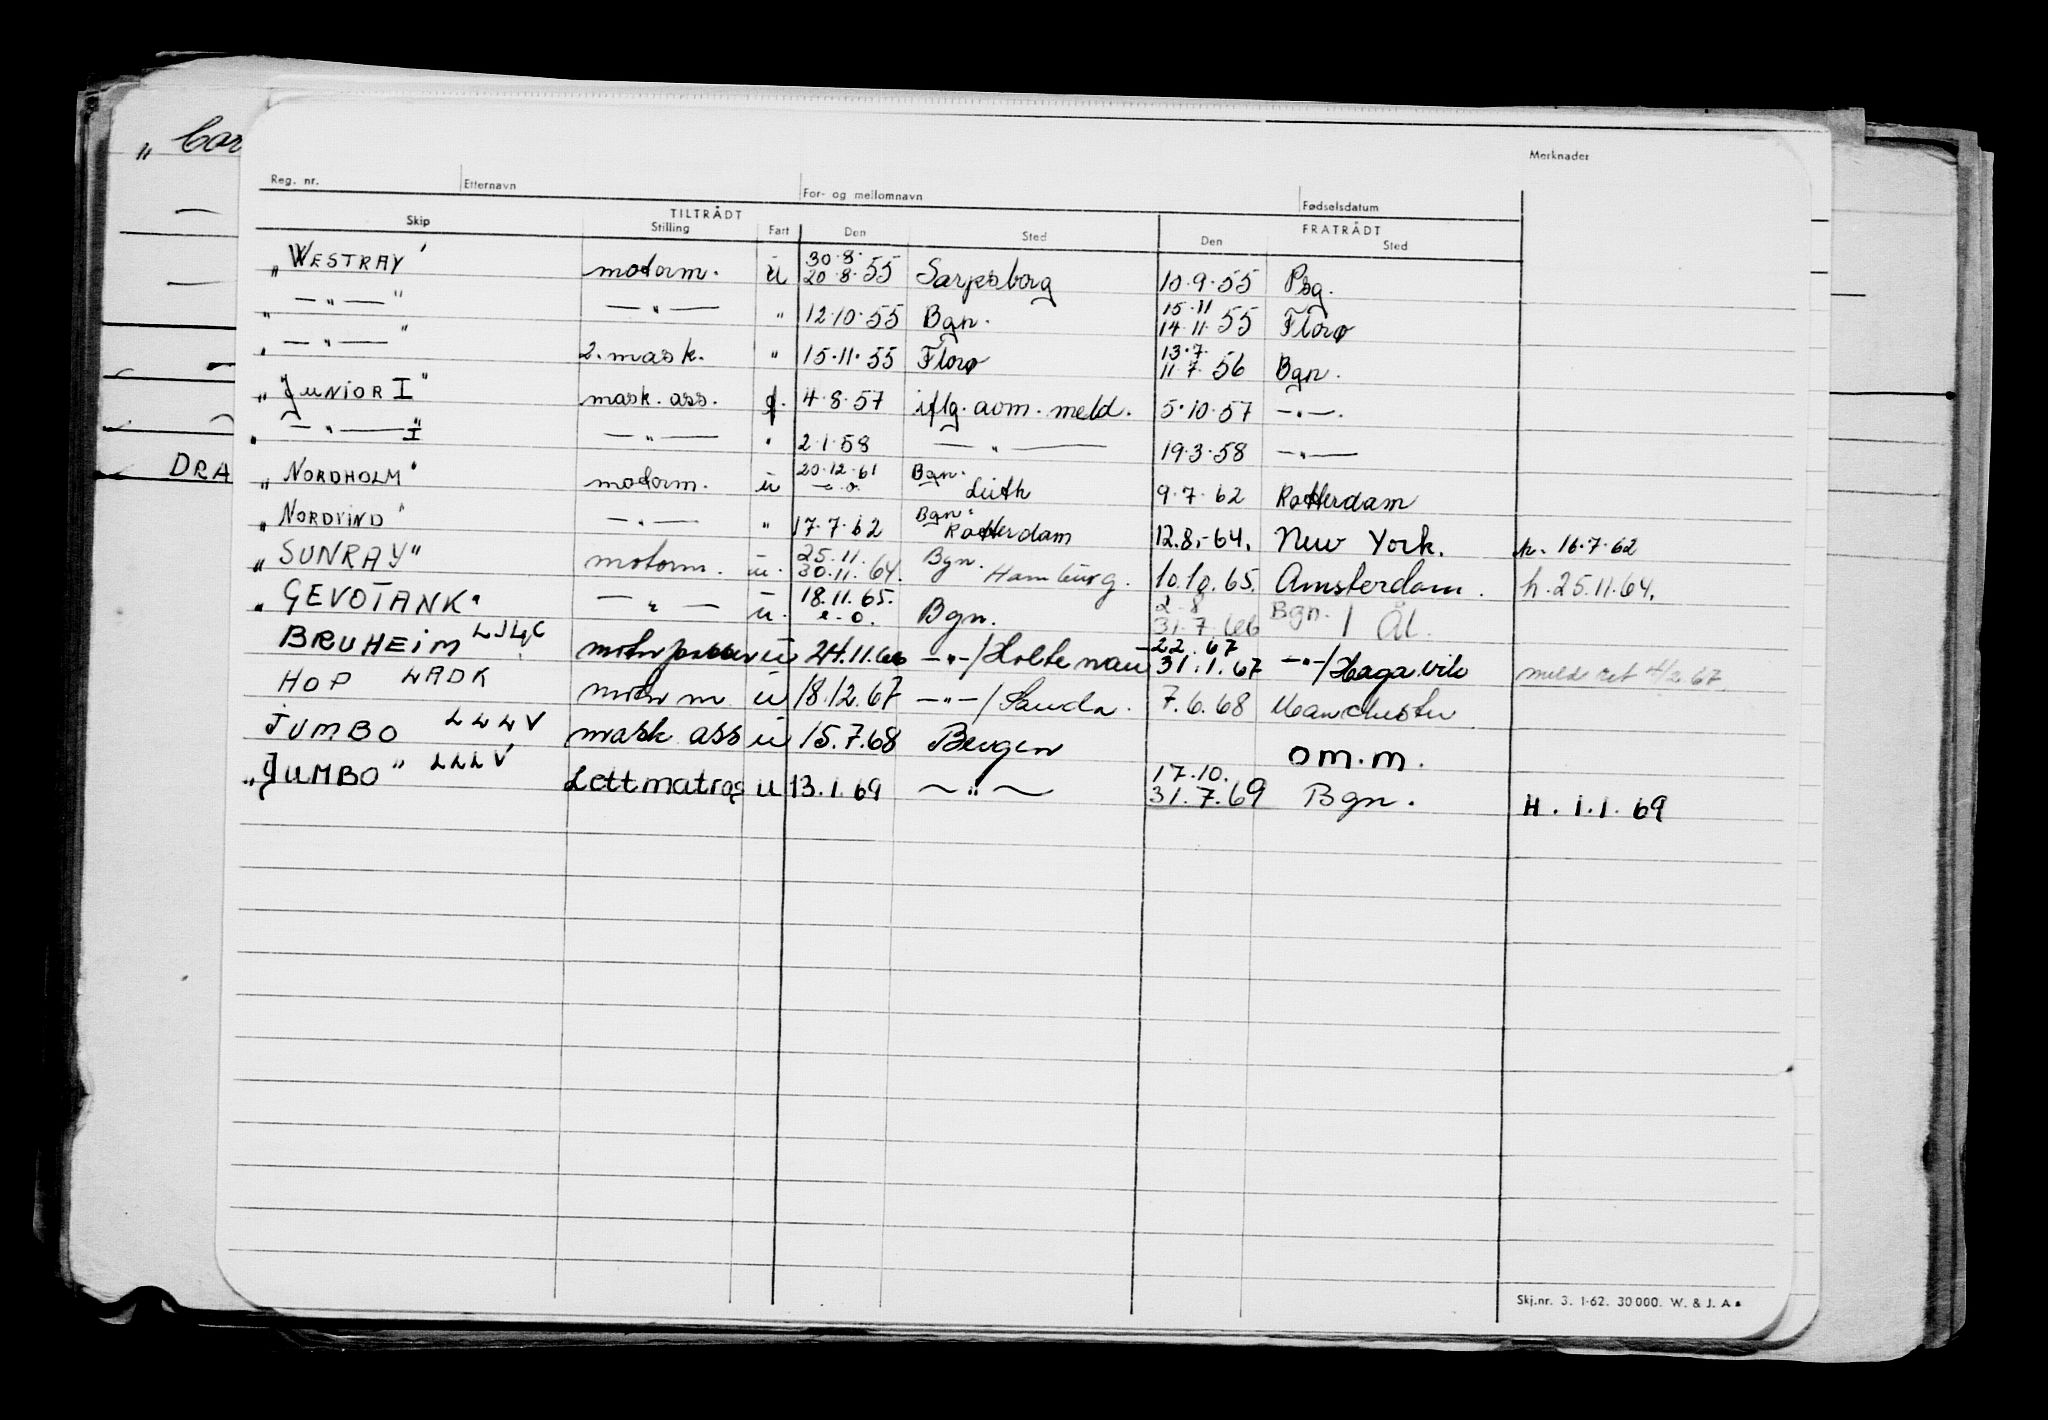 „ Car
DRA
Merknader
Reg. nr. Etternavn For- og mellomnavn Fødselsdatum
TILTRÅDT FRATRÅDT
Skip Stilling Fart Den Sted Den Sted
„WESTRAY" motorm. u 30.8. 20.8.55 Sarpsborg 10.9.55 Psg.
„ — „ — " — „ — " 12.10.55 Bgn. 15.11 14.11.55 Florø
„ — „ — " 2. mask. " 15.11.55 Florø 13.7. 11.7.56 Bgn.
„JUNIOR I" mask. ass. f. 4.8.57 iflg. avm. meld. 5.10.57 — „ —.
„ — „ — I" — „ — " 2.1.58 — „ — 19.3.58 — „ —
„NORDHOLM" motorm. u 20.12.61 — e.o. Bgn. Leith 9.7.62 Rotterdam
„NORDVIND" — „ — " 17.7.62 Bgn. Rotterdam 12.8.-64. New York. h. 16.7.62
„SUNRAY" motorm. u. 25.11. 30.11.64. Bgn. Hamburg. 10.10.65. Amsterdam. h. 25.11.64.
„GEVOTANK" — „ — u. 18.11.65. e.o. Bgn. 2-8 31.7.66 Bgn. / Ål.
BRUHEIM LJLC motorpasser u 24.11.66 — „ — / Holtenau 22.67 31.1.67 — „ — / Hagavik 4/2.67.
HOP LADK motorm u 18.12.67 — „ — / Sauda. 7.6.68 Manchester
JUMBO LLLV mask ass u 15.7.68 Bergen om.m.
„JUMBO" LLLV Lettmatros u 13.1.69 — „ — 17.10. 31.7.69 Bgn. H. 1.1.69
Skj.nr. 3. 1-62. 30 000. W. & J. A